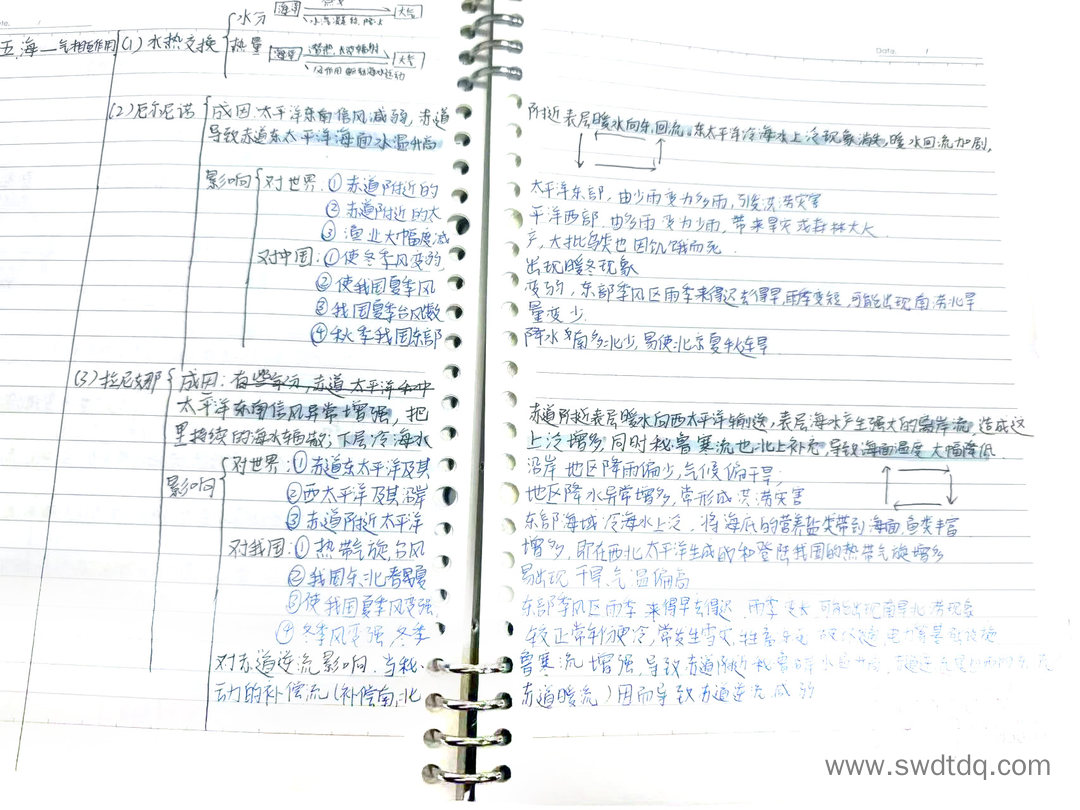 五、海—气相互作用
(1)水热交换
水分
海洋
大气
水汽凝结,降水
热量
海洋
潜热、太阳辐射
大气
风作用驱动海水运动
Date.
(2)厄尔尼诺
成因:太平洋东南信风减弱,赤道附近表层暖水向东回流,东太平洋冷海水上泛现象消失,暖水回流加剧,
导致赤道东太平洋海面水温升高
影响
对世界:①赤道附近的太平洋东部,由少雨变为多雨,引发洪涝灾害
②赤道附近的太平洋西部,由多雨变为少雨,带来旱灾或森林大火
③渔业大幅度减产,大批鸟类也因饥饿而死.
对中国:①使冬季风变弱,出现暖冬现象
②使我国夏季风变弱,东部季风区雨季来得迟去得早,雨季变短,可能出现南涝北旱
③我国夏季台风数量变少.
④秋季我国东部降水南多北少,易使北京夏秋连旱
(3)拉尼娜
成因:
太平洋东南信风异常增强,把赤道附近表层暖水向西太平洋输送,表层海水产生强大的离岸流,造成这
里持续的海水辐散;下层冷海水上泛增多,同时秘鲁寒流也北上补充,导致海面温度大幅降低
影响
对世界:①赤道东太平洋及其沿岸地区降雨偏少,气候偏干旱;
②西太平洋及其沿岸地区降水异常增多,常形成洪涝灾害
③赤道附近太平洋东部海域冷海水上泛,将海底的营养盐类带到海面,鱼类丰富
对我国:①热带气旋、台风增多,即在西北太平洋生成的和登陆我国的热带气旋增多
②我国东北春夏易出现干旱、气温偏高
③使我国夏季风变强,东部季风区雨季来得早去得迟,雨季变长,可能出现南旱北涝现象
④冬季风变强,冬季较正常年份更冷,常发生雪灾,牲畜
对赤道逆流影响:当秘鲁寒流增强,导致赤道附近秘鲁
动的补偿流(补偿南、北赤道暖流)因而导致赤道逆流减弱
www.swdtdq.com